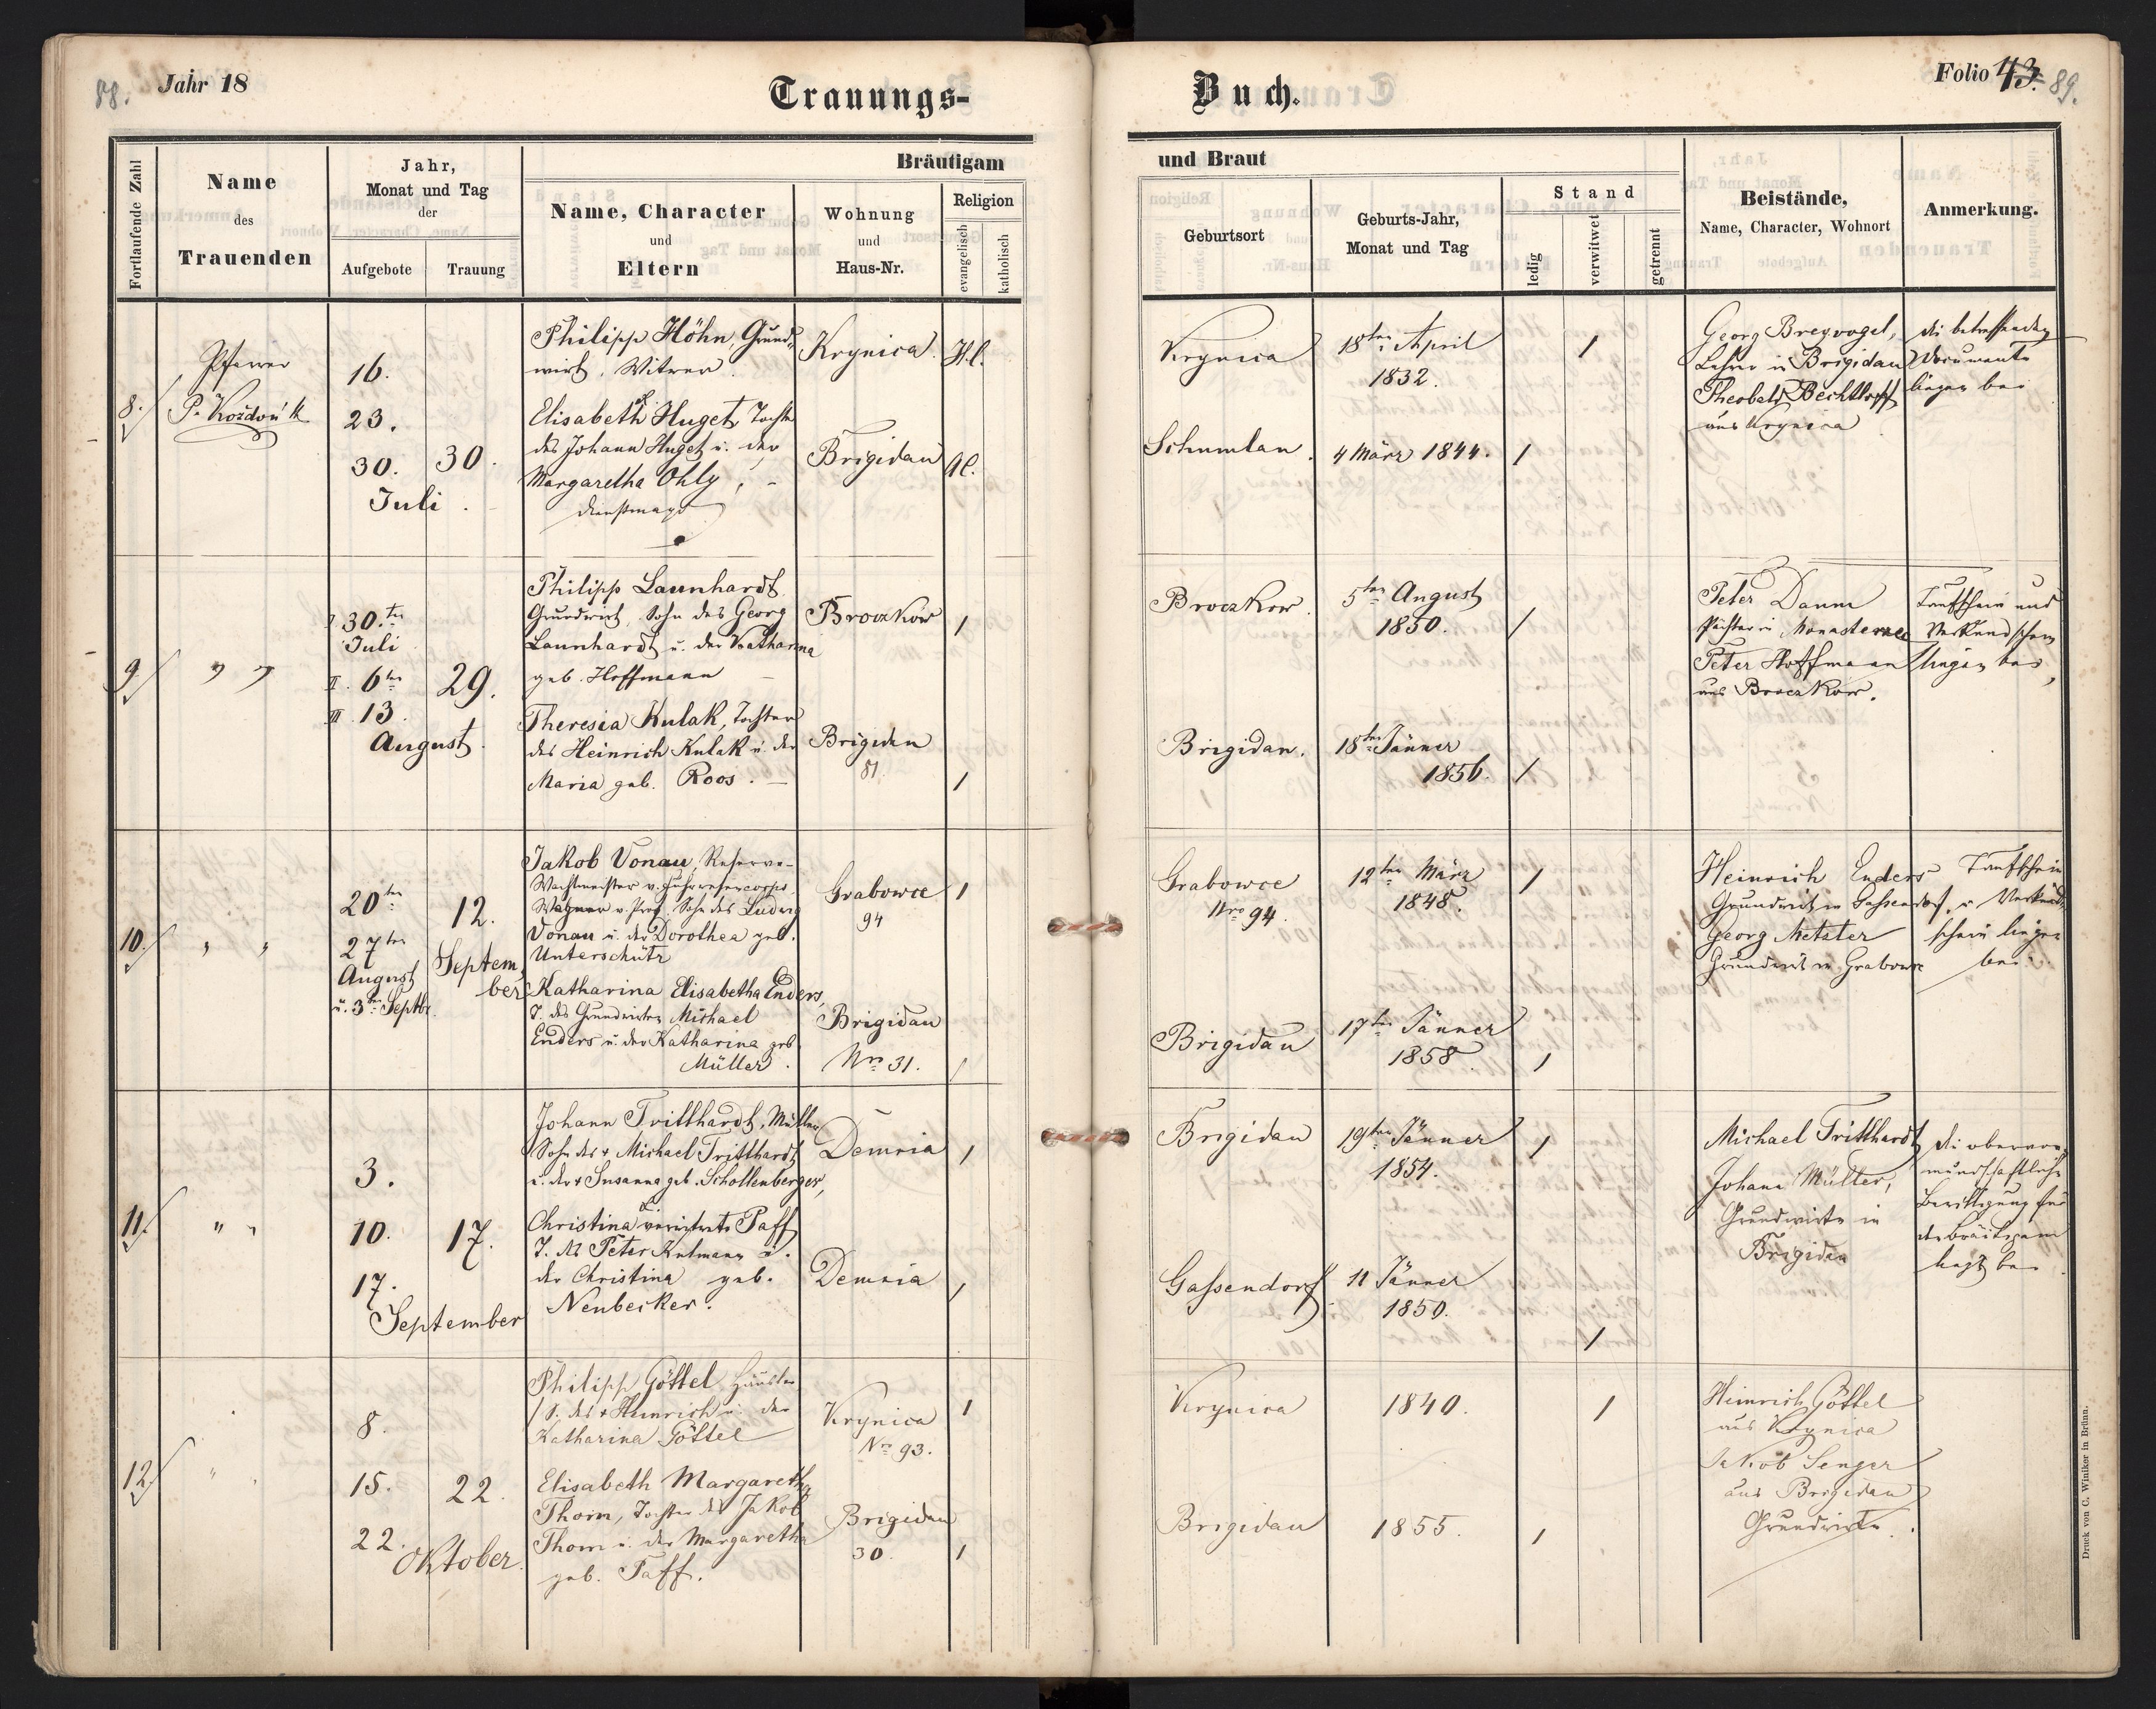 88.
Jahr 18
Trauungs-
Fortlaufende Zahl
Name
des
Trauenden
Jahr,
Monat und Tag
der
Aufgebote
Trauung
Bräutigam
Name, Character
und
Eltern
Wohnung
und
Haus-Nr.
Religion
evangelisch
katholisch
8.
Pfarrer
P. Koždoń
16.
23.
30.
Juli
30.
Philipp Höhn, Grund-
wirt, Witwer
Elisabeth Huget, Tochter
des Johann Huget u. der
Margaretha Ohly,
Dienstmagd
Krynica.
H.C.
Brigidau
A.C.
9
" "
I 30.ten
Juli
II. 6ten
III. 13.
August.
29.
Philipp Launhardt
Grundwirt, Sohn des Georg
Launhardt u. der Katharina
geb. Hoffmann
Theresia Kulak, Tochter
des Heinrich Kulak u. der
Maria geb. Roos.
Broczków
1
Brigidau
81.
1
10.
" "
20ten
27ten
August
u. 3ten Septbr.
12.
Septem-
ber
Jakob Vonau, Reserve-
Wachtmeister v. Fuhrwesencorps
Wagner v. Prof. Sohn des Ludwig
Vonau u. der Dorothea geb.
Unterschütz
Katharina Elisabetha Enders,
T. des Grundwirten Michael
Enders u. der Katharina geb.
Müller.
Grabowce
94
1
Brigidau
Nro 31.
1
11.
" "
3.
10.
17.
September
17.
Johann Tritthardt, Müller
Sohn des + Michael Tritthardt
u. der + Susanna geb. Schollenberger,
Christina verwitwete Paff
T. des Peter Kulmann u.
der Christina geb.
Neubecker.
Demnia
1
Demnia
1
12
" "
8.
15.
22.
Oktober.
22.
Philipp Göttel Häusler
S. des + Heinrich u. der
Katharina Göttel
Elisabeth Margaretha
Thom, Tochter des Jakob
Thom u. der Margaretha
geb. Paff.
Krynica
Nro 93.
1
Brigidau
30.
1
Buch.
Folio 43.
89.
und Braut
Geburtsort
Geburts-Jahr,
Monat und Tag
Stand
ledig
verwitwet
getrennt
Beistände,
Name, Character, Wohnort
Anmerkung.
Krynica
18ten April
1832.
1
Georg Breyvogel,
Lehrer in Brigidau
Theobald Bechtloff
aus Krynica
die betreffenden
Documente
liegen bei
Schumlau.
4 März 1844.
1
Broczkow
5ten August
1850.
1
Peter Daum
Pächter in
Peter Hoffmann
aus Broczkow.
Taufschein und
Verkündschein
liegen bei,
Brigidau.
18ten Jänner
1856.
1
Grabowce
Nro 94.
12ten März
1848.
1
Heinrich Enders
Grundwirt in Gassendorf.
Georg Metzler
Grundwirt in Grabowce
Taufschein
u. Verkünd-
schein liegen
bei.
Brigidau
17ten Jänner
1858.
1
Brigidau
19ten Jänner
1854.
1
Michael Tritthardt
Johann Müller,
Grundwirte in
Brigidau
die obervor-
mundschaftliche
Bewilligung für
den Bräutigam
liegt bei
Gassendorf
11 Jänner
1850.
1
Krynica
1840.
1
Heinrich Göttel
aus Krynica
Jakob Senger
aus Brigidau
Grundwirte.
Brigidau
1855.
1
Druck von C. Winiker in Brünn.